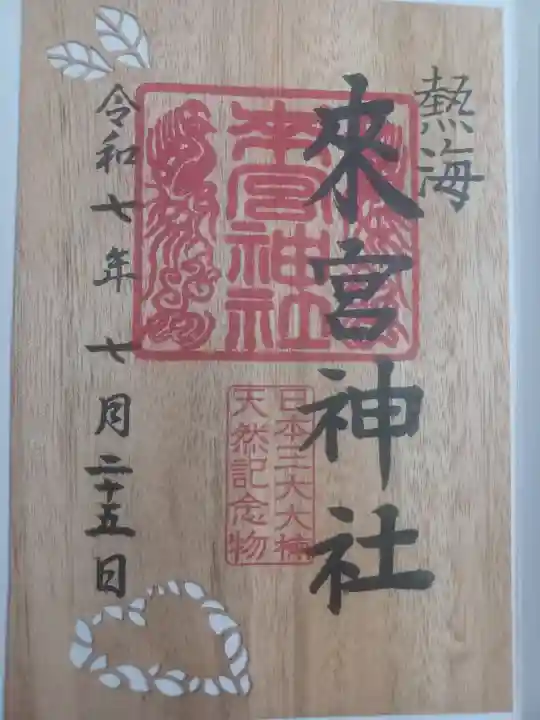 熱海
來宮神社
來宮神社
日本三大大楠
天然記念物
令和七年 七月二十五日